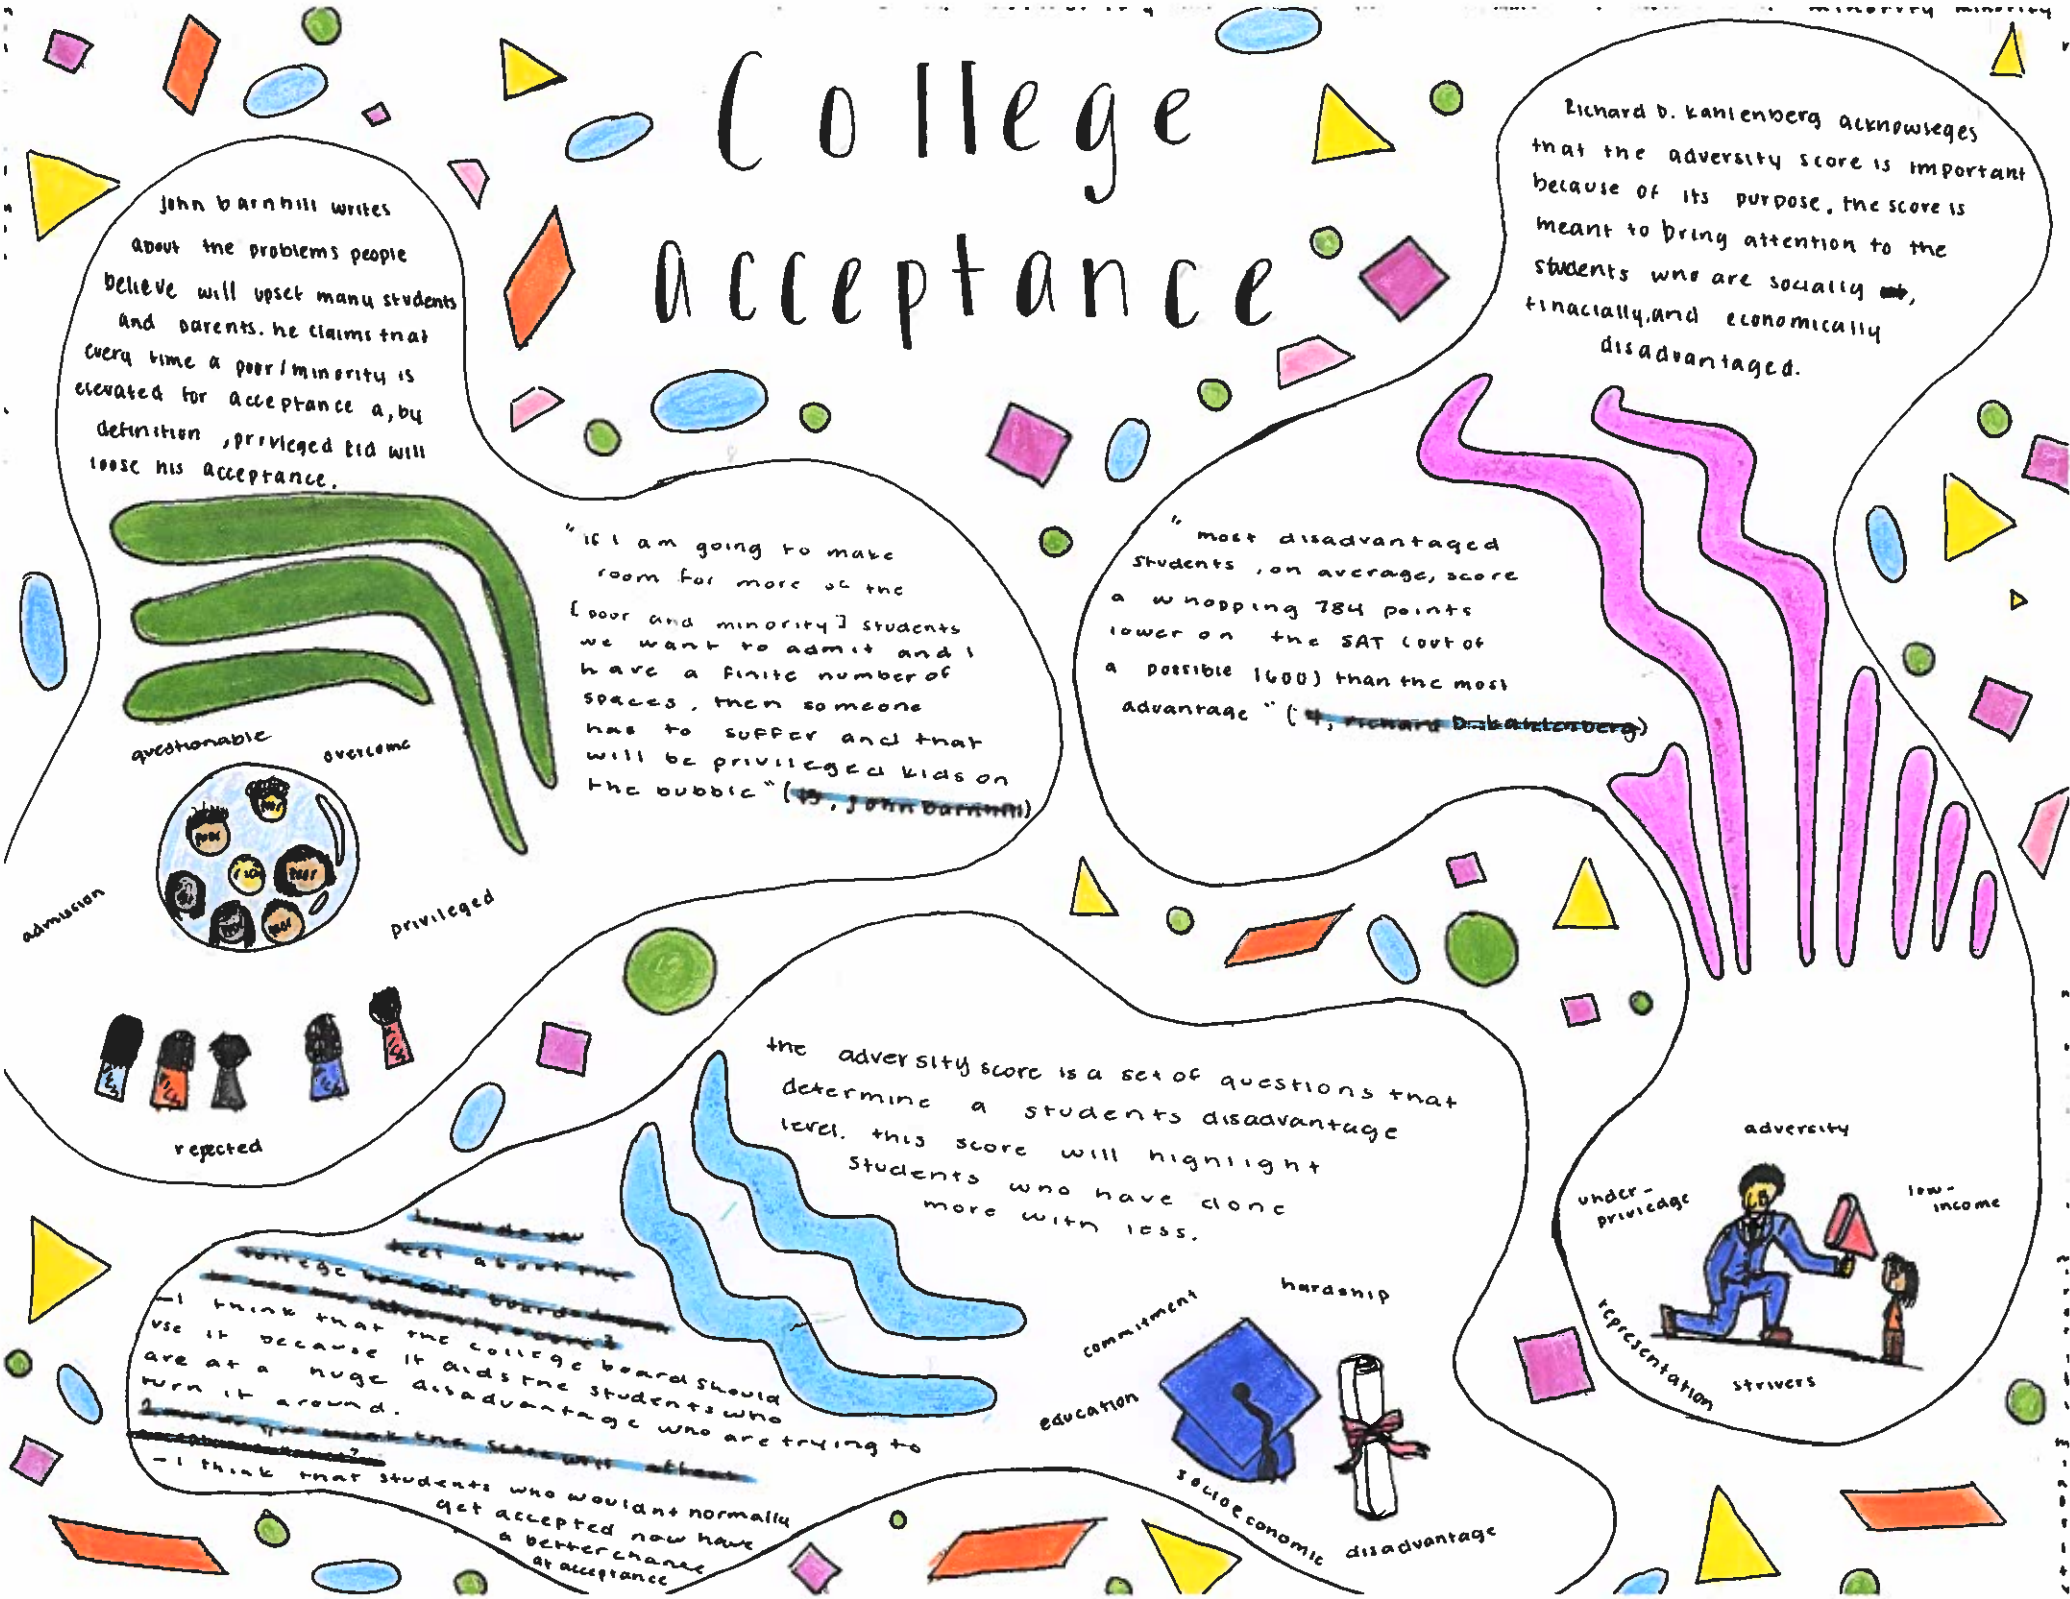 College
acceptance
john barnhill writes
about the problems people
believe will upset many students
and parents. he claims that
every time a poor/minority is
elevated for acceptance a, by
definition , privleged kid will
loose his acceptance.
"if i am going to make
room for more of the
[poor and minority] students
we want to admit and i
have a finite number of
spaces, then someone
has to suffer and that
will be privileged kids on
the bubble" (13, john barnhill)
questionable
overcome
admission
privileged
rejected
Richard D. kahlenberg acknowleges
that the adversity score is important
because of its purpose. the score is
meant to bring attention to the
students who are socially ,
finacially, and economically
disadvantaged.
"most disadvantaged
students , on average, score
a whopping 784 points
lower on the SAT (out of
a possible 1600) than the most
advantage" (4, richard D. kahlenberg)
adversity
under-
priviledge
low-
income
representation
strivers
the adversity score is a set of questions that
determine a students disadvantage
level. this score will highlight
students who have done
more with less.
feel about the
college
-i think that the college board should
use it because it aids the students who
are at a huge disadvantage who are trying to
turn it around.
-i think that students who wouldnt normally
get accepted now have
a better chance
at acceptance
hardship
commitment
education
socioeconomic
disadvantage
minority minority